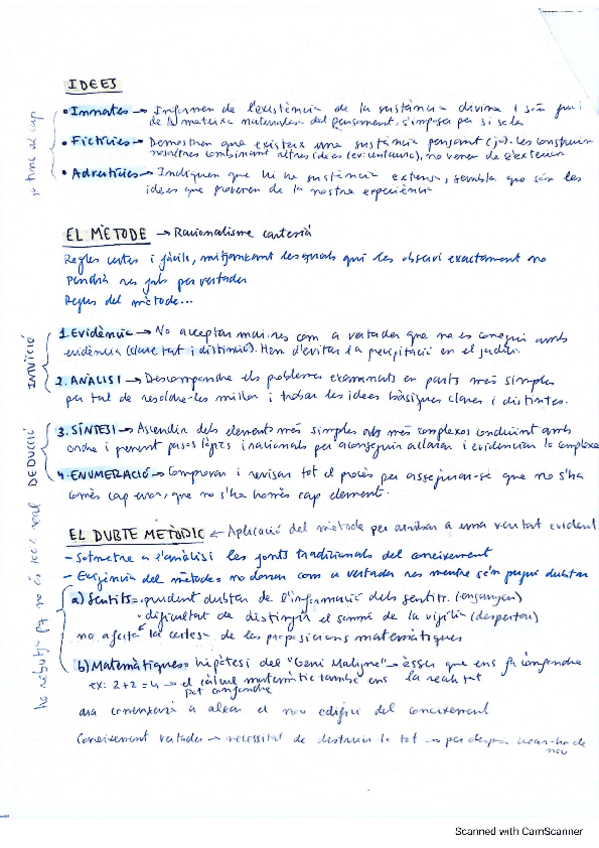 IDEES
• Innates → Informen de l'existència de la substància divina i són fruit
de la mateixa naturalesa del pensament, s'imposa per si sola
• Fictícies → Demostren que existeix una substància pensant (jo). Les construim
nosaltres combinant altres idees (ex: centaure), no venen de l'exterior
• Adventícies → Indiquen que hi ha substància extensa, sembla que són les
idees que provenen de la nostra experiència
EL MÈTODE → Racionalisme cartesià
Regles certes i fàcils, mitjançant les quals qui les observi exactament no
prendrà res fals per vertader
Regles del mètode...
INTUÏCIÓ
1. Evidència → No acceptar mai res com a vertader que no es conegui amb
evidència (claredat i distinció). Hem d'evitar la precipitació en el judici.
2. ANÀLISI → Descompondre els problemes examinats en parts més simples
per tal de resoldre-les millor i trobar les idees bàsiques clares i distintes.
DEDUCCIÓ
3. SÍNTESI → Ascendir dels elements més simples als més complexos conduint amb
ordre i prenent passos lògics i racionals per aconseguir aclarir i evidenciar lo complexe
4. ENUMERACIÓ → Comprovar i revisar tot el procès per assegurar-se que no s'ha
comès cap error, que no s'ha omès cap element.
EL DUBTE METÒDIC ← Aplicació del mètode per arribar a una veritat evident
- Sotmetre a l'anàlisi les fonts tradicionals del coneixement
- Exigència del mètode: no donar com a vertader res mentre se'n pugui dubtar
a) Sentits = prudent dubtar de l'informació dels sentits. (enganyen)
dificultat de distingir el somni de la vigília (despertar)
no afecta la certesa de les proposicions matemàtiques
b) Matemàtiques = hipòtesi del "Geni Maligne" → ésser que ens fa confondre
ex: 2+2=4 → el càlcul matemàtic també ens
pot confondre la realitat
ara començarà a alçar el nou edifici del coneixement
Coneixement vertader → necessitat de destruir-lo tot → per després crear-lo de
nou